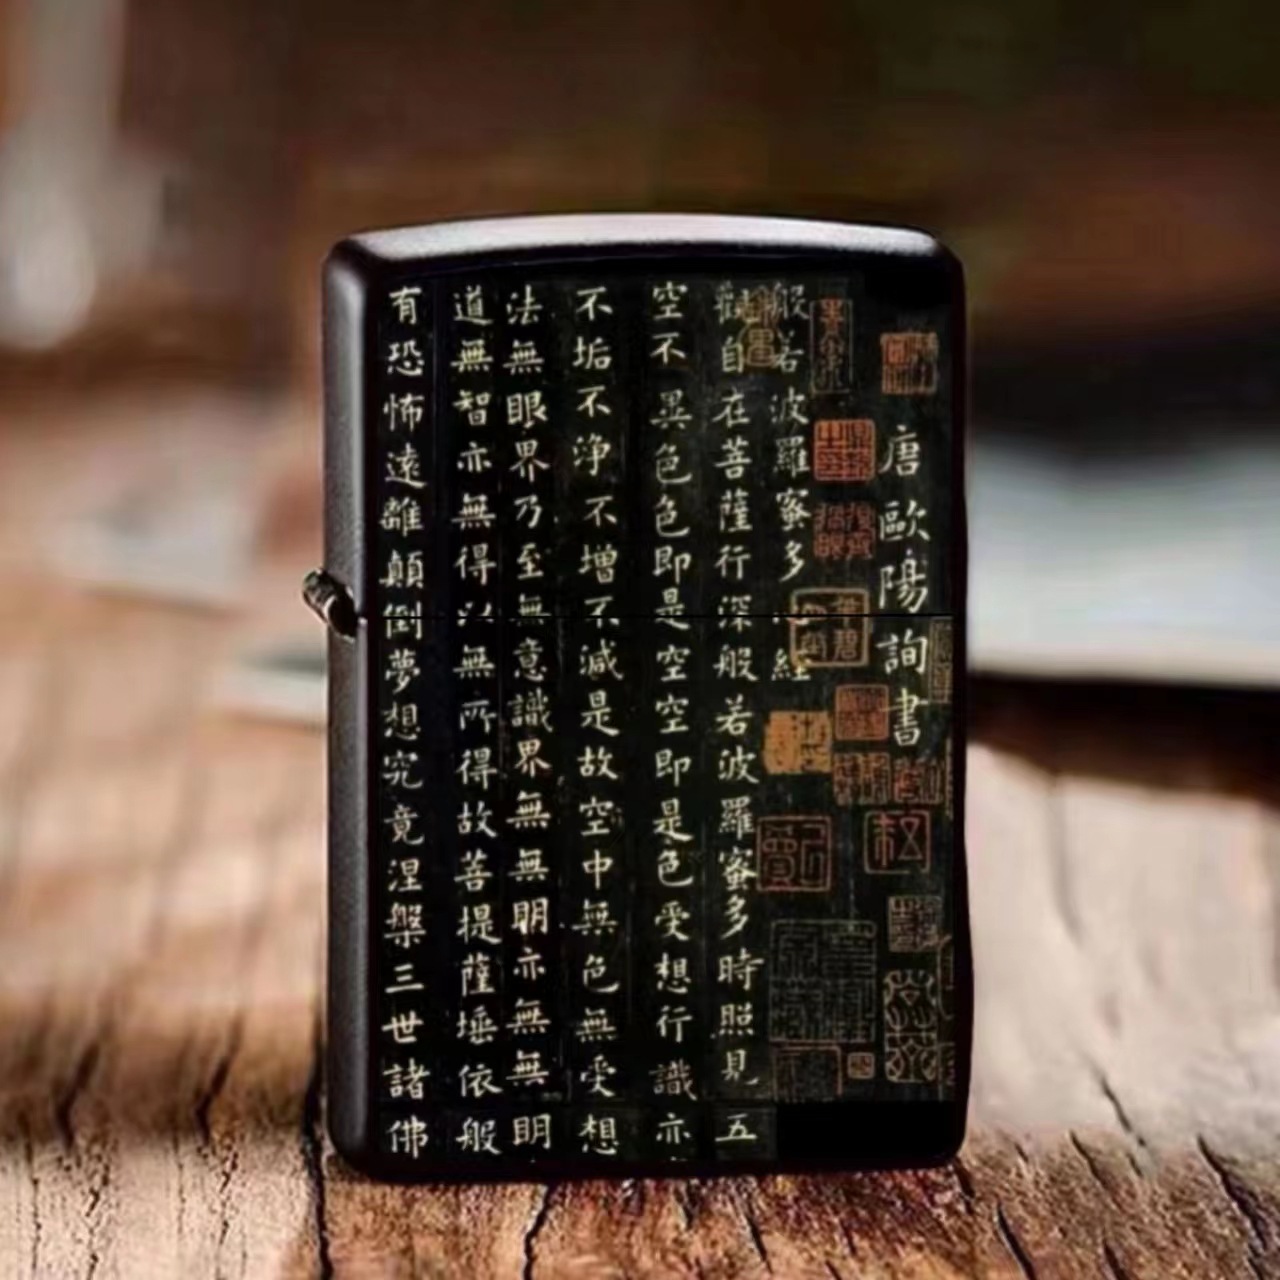 唐歐陽詢書
般若波羅蜜多心經
觀自在菩薩行深般若波羅蜜多時照見五
空不異色色即是空空即是色受想行識亦
不垢不淨不增不減是故空中無色無受想
法無眼界乃至無意識界無無明亦無無明
道無智亦無得以無所得故菩提薩埵依般
有恐怖遠離顛倒夢想究竟涅槃三世諸佛